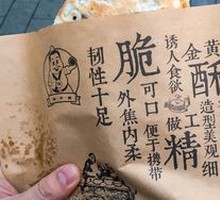 黄金
诱人食欲
酥
造型美观细
工
做
精
脆
可口
便于携带
外焦内柔
韧性十足